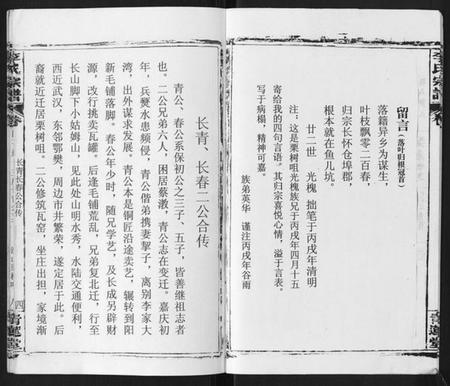 留言（落叶归根冠首）
落籍异乡为谋生，
叶枝飘零二百春，
归宗长怀仓埠郡，
根本就在鱼儿坑。
廿二世 光槐 拙笔于丙戌年清明
注：这是栗树咀光槐族兄于丙戌年四月十五
寄给我的四句言语。其归宗喜悦心情，溢于言表。
写于病榻，精神可嘉。
族弟英华 谨注丙戌年谷雨
长青、长春二公合传
青公、春公系保初公之三子、五子，皆善继祖志者
也。二公兄弟六人，困居蔡漖，青公志在变迁。嘉庆初
年，兵燹水患频侵，青公偕弟携妻挈子，离别李家大
湾，出外谋求发展。青公本是铜匠沿途卖艺，辗转到阳
新毛铺落脚。春公年少时，随兄学艺，及长成另辟财
源，改行挑卖瓦罐。后逢毛铺荒乱，兄弟复北迁，行至
长山脚下小姑姆山，见此处山明水秀，水陆交通便利，
西近武汉，东邻鄂樊，周边市井繁荣，遂定居于此。后
裔就近迁居栗树咀。二公修筑瓦窑，坐庄出担，家境渐
长青长春公合传
四
青莲堂